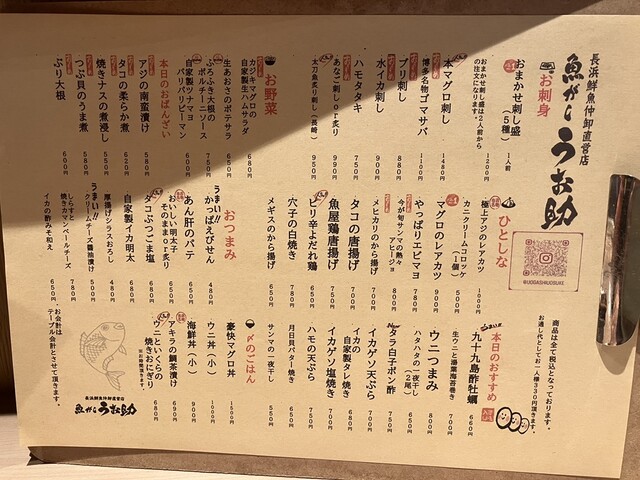 長浜鮮魚仲卸直営店
魚がし うお助
お刺身
おまかせ刺し盛（5種）1人前 1200円
おまかせ刺し盛は2人前からの注文になります。
本マグロ刺し 1480円
博多名物ゴマサバ 1100円
ブリ刺し 880円
水イカ刺し 900円
ハモタタキ 750円
あなご刺しor炙り 990円
太刀魚炙り刺し（長崎）950円
お野菜
カジキマグロの自家製生ハムサラダ 680円
生あおさのポテサラ 650円
ふろふき大根のポルチーニソース 750円
自家製ツナマヨパリパリピーマン 600円
本日のおばんざい
アジの南蛮漬け 580円
タコの柔らか煮 620円
焼きナスの煮浸し 550円
つぶ貝のうま煮 580円
ぶり大根 600円
ひとしな
極上アジのレアカツ 1000円
カニクリームコロッケ（1個）500円
マグロのレアカツ 900円
やっぱりエビマヨ 780円
今が旬サンマの熱々アヒージョ 800円
メヒカリのから揚げ 700円
タコの唐揚げ 700円
魚屋鶏唐揚げ 750円
ピリ辛よだれ鶏 650円
穴子の白焼き 780円
メギスのから揚げ 650円
おつまみ
うまい!!かっぱえびせん 480円
あん肝のパテ 650円
おいしい明太子そのままor炙り 600円
タコぶつごま塩 680円
自家製イカ明太 680円
厚揚げシラスおろし 540円
うまい!!クリームチーズ醤油漬け 500円
しらすと焼きカマンベールチーズ 780円
イカの酢みそ和え 650円
@UOGASHIUOSUKE
商品は全て税込となっております。
お通し代としてお一人様330円頂きます。
本日のおすすめ
九十九島酢牡蠣 660円
生ウニと湯葉海苔巻き 700円
ウニつまみ 800円
ハタハタの一夜干し（2尾）650円
タラ白子ポン酢 750円
イカゲソ天ぷら 700円
イカの自家製タレ焼き 680円
イカゲソ塩焼き 700円
ハモの天ぷら 750円
月日貝バター焼き 650円
サンマの一夜干し 550円
〆のごはん
豪快マグロ丼 1500円
ウニ丼（小）1000円
海鮮丼（小）900円
アキラの鯛茶漬け 690円
ウニといくらの焼きおにぎり 680円
お会計はテーブル会計とさせて頂きます。
長浜鮮魚仲卸直営店
魚がし うお助